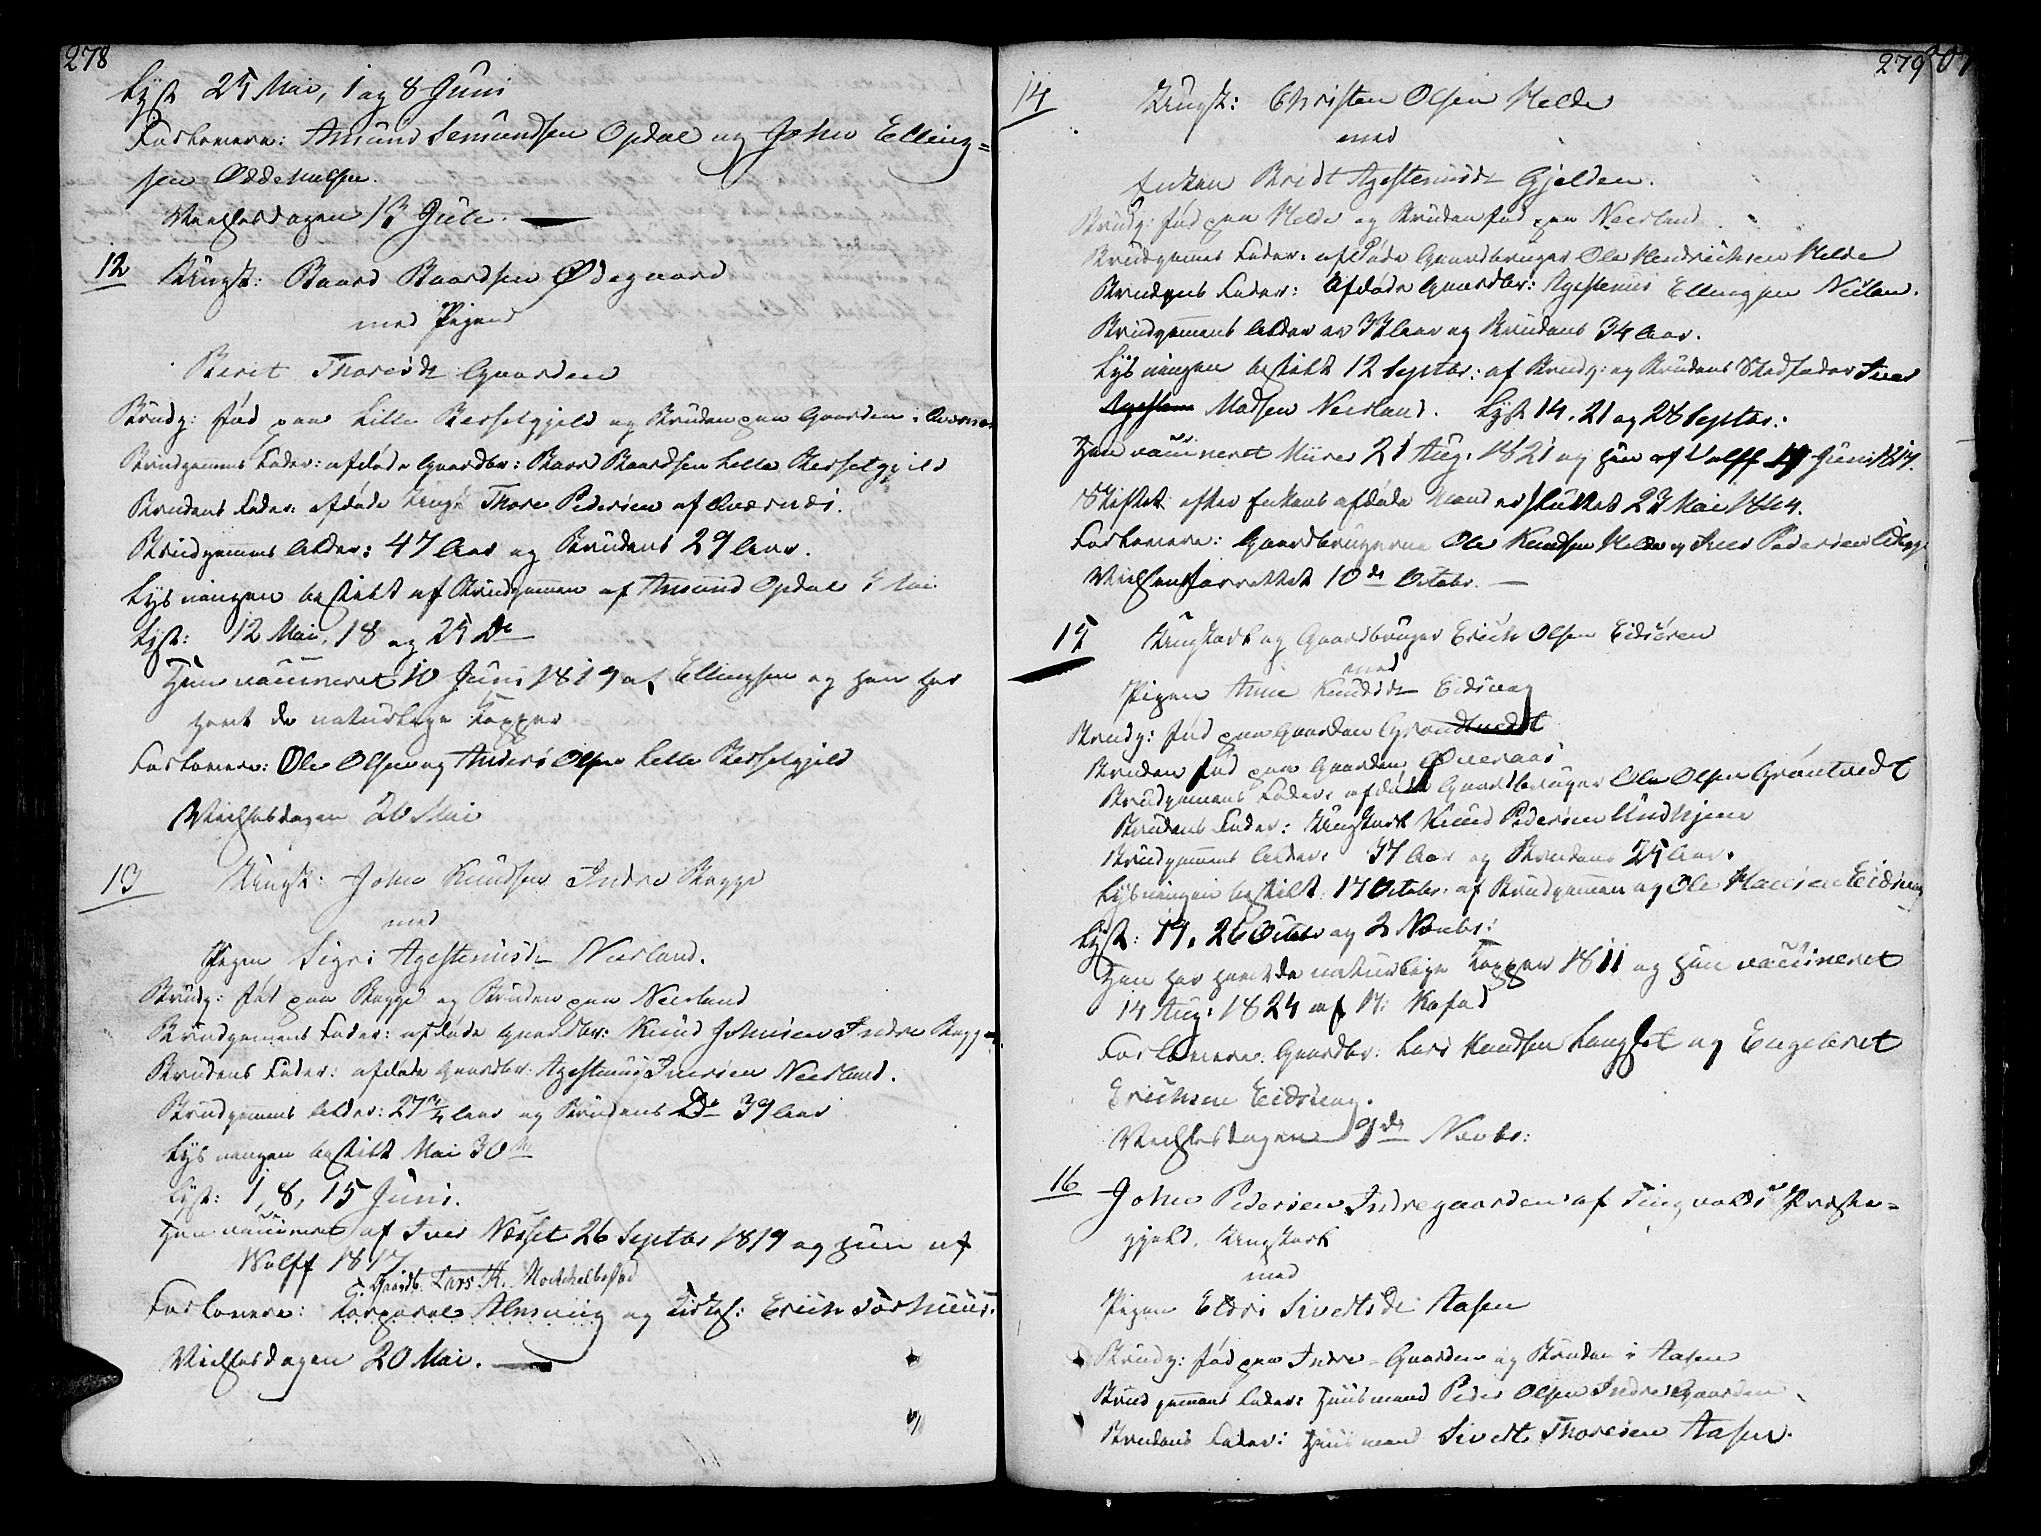 278
Lyst 25 Mai, 1 og 8 Juni
Forlovere: Amund Semundsen Opdal og John Elling=
sen Oddehalsen.
Vielsesdagen 13 Juli.
12 Ungk: Baard Baardsen Ødegaard
med Pigen
Berit Thoresdr Gaarden
Brudg: fød paa Lille Bersetgjeld og Bruden paa Gaarden i
Brudgommens Fader: afdøde Gaardbr: Baar Baardsen Lille Bersetgjeld
Brudens Fader: afdøde Thore Pedersen af
Brudgommens Alder: 47 Aar og Brudens 29 Aar.
Lysningen bestilt af Brudgommen af Amund Opdal Mai
Lyst: 12 Mai, 18 og 25 Do
Hun vaccineret 10 Juni 1819 af Ellingsen og han har
havt de naturlige Kopper
Forlovere: Ole Olsen og Anders Olsen Lille Bersetgjeld
Vielsesdagen 20 Mai
13 Ungk: John Knudsen Indre Bogge
med
Pigen Sigri Agestensdr Neerland.
Brudg: fød paa Bogge og Bruden paa Neerland
Brudgommens Fader: afdøde Gaardbr: Knud Johnsen Indre Bogge
Brudens Fader: afdøde Gaardbr: Agesten Iversen Neerland.
Brudgommens Alder: 27 3/4 Aar og Brudens Do 39 Aar
Lysningen bestilt Mai 30te
Lyst: 1, 8, 15 Juni.
Han vaccineret af Iver Næsset 26 Septbr 1819 og hun af
Wolff 1817
Gaardb. Lars K. Meekelbostad
Forlovere: Korporal og Kirkes: Erich Torhuus.
Vielsesdagen 20 Mai.
279
14 Ungk: Christen Olsen Helde
med
Enken Bridt Agestensdr Gjelden.
Brudg: fød paa Helde og Bruden fød paa Neerland
Brudgommens Fader: afdøde Gaardbruger Ole Hendrichsen Helde
Brudens Fader: Afdøde Gaardbr: Agesten Ellingsen Neerlan.
Brudgommens Alder er 33 Aar og Brudens 34 Aar.
Lysningen bestilt 12 Septbr: af Brudg: og Brudens Stedfader Iver
Agesten Madsen Neerland. Lyst 14, 21 og 28 Septbr:
Han vaccineret 21 Aug. 1821 og hun af Wolff 19 Juni 1817.
Skiftet efter Enkens afdøde Mand er sluttet 23 Mai 1844.
Forlovere: Gaardbrugerne Ole Knudsen Helde og Iver Pedersen
Vielsen forrettet 10de Octobr.
15 Ungkarl og Gaardbruger Erich Olsen Eidsøren
med
Pigen Anne Knudsdr Eidsvag
Brudg: fød paa Gaarden Grøndtvedt
Bruden fød paa Gaarden Øveraas
Brudgommens Fader: afdøde Gaardbruger Ole Olsen Grøntvedt
Brudens Fader: Ungkarl Knud Pedersen Undhjem
Brudgommens Alder: 37 Aar og Brudens 25 Aar.
Lysningen bestilt 17 Octobr: af Brudgommen og Ole Hansen Eidsvag
Lyst: 19, 26 Octobr og 2 Novbr:
Han har havt de naturlige Kopper 1811 og hun vaccineret
14 Aug: 1824 af N: Kafod
Forlovere: Gaardbr: Lars Knudsen Langset og Engebret
Erichsen Eidsvag.
Vielsesdagen 9de Novbr:
16 John Pedersen Indregaarden af Tingvolds Præste=
gjeld, Ungkarl
med
Pigen Eldri Sivertsdr Aasen
Brudg: fød paa Indre-Gaarden og Bruden i Aasen
Brudgommens Fader: Huusmand Peder Olsen Indre Gaarden
Brudens Fader: Huusmand Sivert Thoresen Aasen.